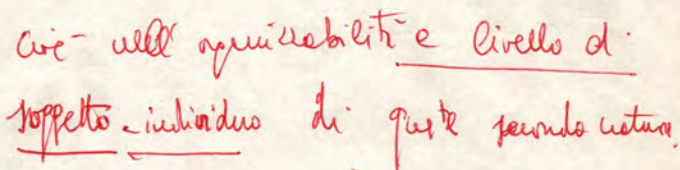 cioè nell' organizzabilità a livello di
soggetto-individuo di questa seconda natura.